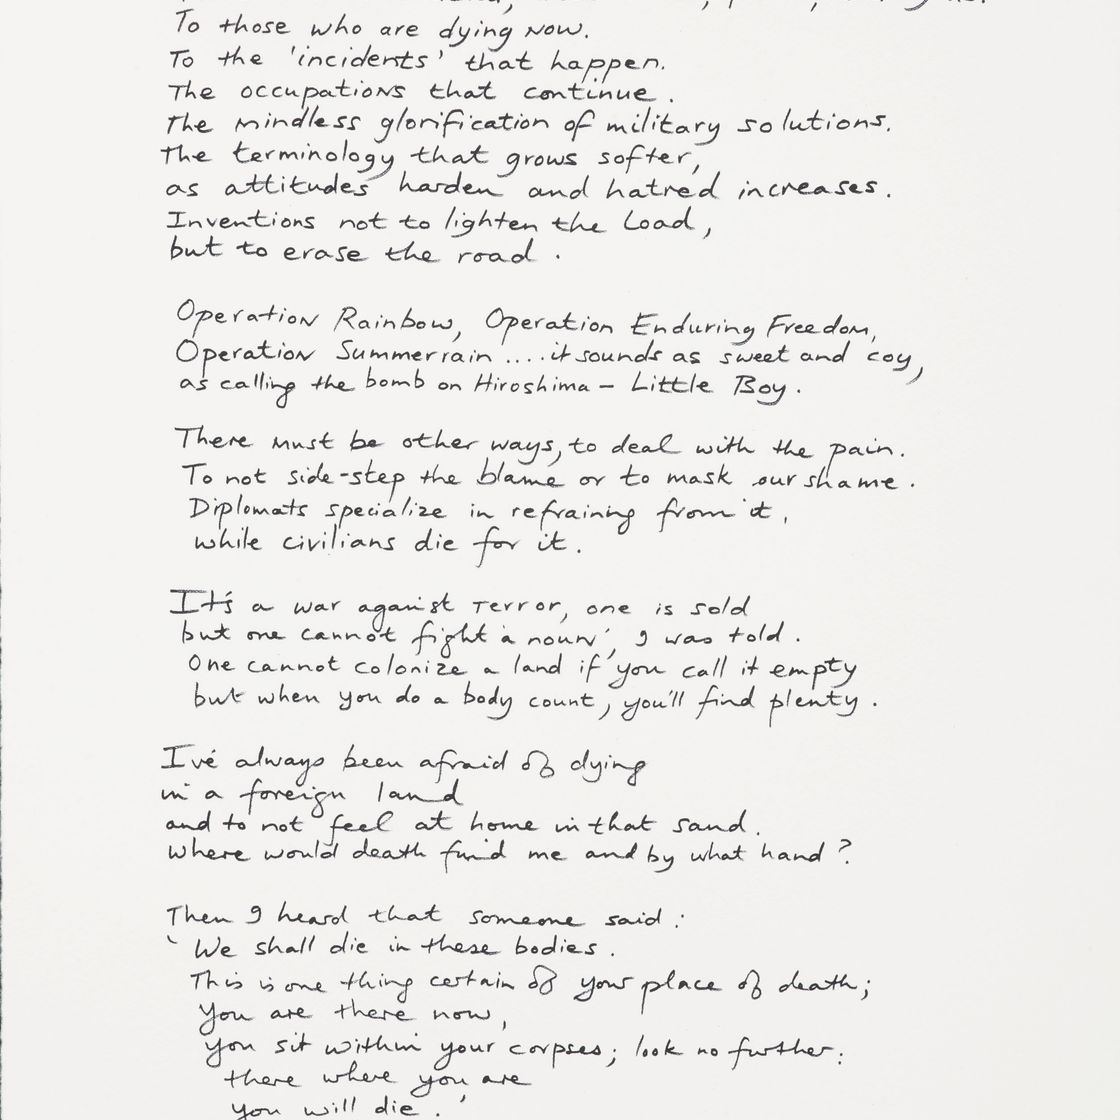 To those who are dying now.
To the 'incidents' that happen.
The occupations that continue.
The mindless glorification of military solutions.
The terminology that grows softer,
as attitudes harden and hatred increases.
Inventions not to lighten the load,
but to erase the road.
Operation Rainbow, Operation Enduring Freedom,
Operation Summerrain .... it sounds as sweet and coy,
as calling the bomb on Hiroshima – Little Boy.
There must be other ways, to deal with the pain.
To not side-step the blame or to mask our shame.
Diplomats specialize in refraining from it,
while civilians die for it.
It's a war against terror, one is sold
but one cannot fight 'a noun', I was told.
One cannot colonize a land if you call it empty
but when you do a body count, you'll find plenty.
I've always been afraid of dying
in a foreign land
and to not feel at home in that sand.
Where would death find me and by what hand?
Then I heard that someone said:
'We shall die in these bodies.
This is one thing certain of your place of death;
you are there now,
you sit within your corpses; look no further:
there where you are
you will die.'